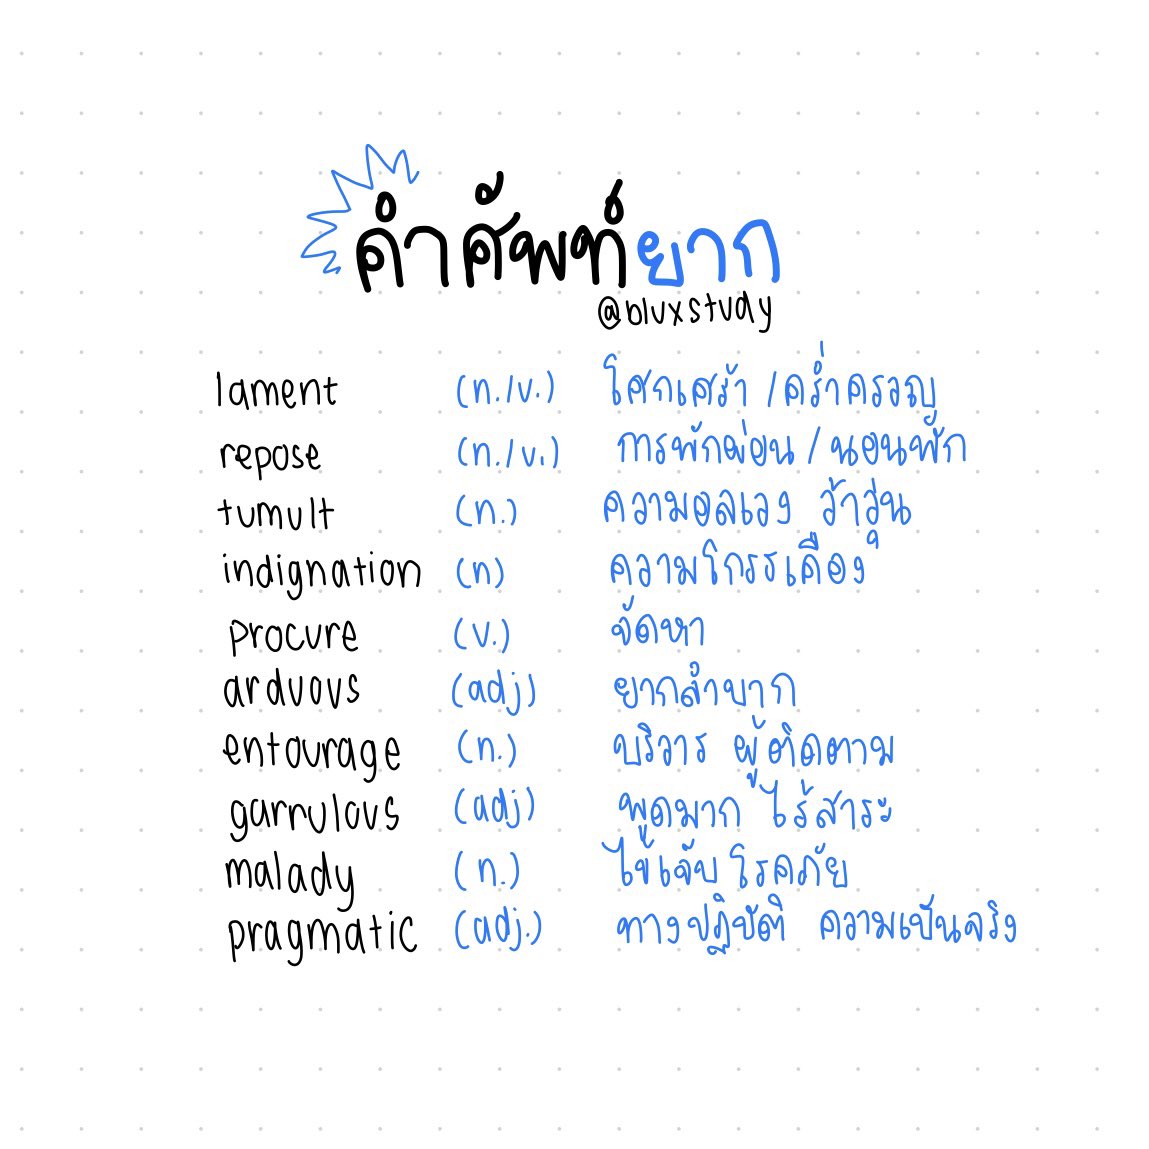 คำศัพท์ยาก
@bluxstudy
lament (n./v.) โศกเศร้า /คร่ำครวญ
repose (n./v.) การพักผ่อน / นอนพัก
tumult (n.) ความอลเวง ว้าวุ่น
indignation (n) ความโกรธเคือง
procure (v.) จัดหา
arduous (adj) ยากลำบาก
entourage (n.) บริวาร ผู้ติดตาม
garrulous (adj) พูดมาก ไร้สาระ
malady (n.) ไข้เจ็บ โรคภัย
pragmatic (adj.) ทางปฏิบัติ ความเป็นจริง